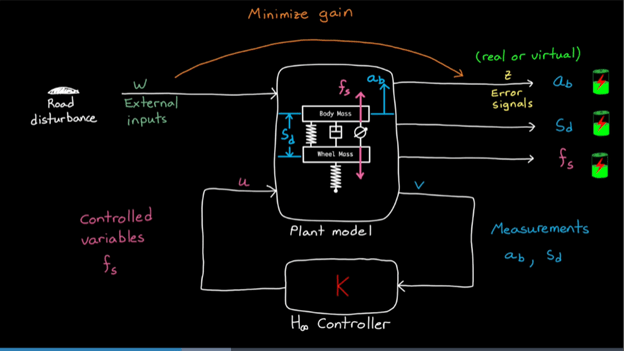 Minimize gain
(real or virtual)
W
z
a_b
Road
disturbance
External
inputs
Error
signals
f_s
a_b
Body Mass
S_d
S_d
Wheel Mass
f_s
u
v
Controlled
variables
f_s
Plant model
Measurements
a_b, S_d
K
H∞ Controller